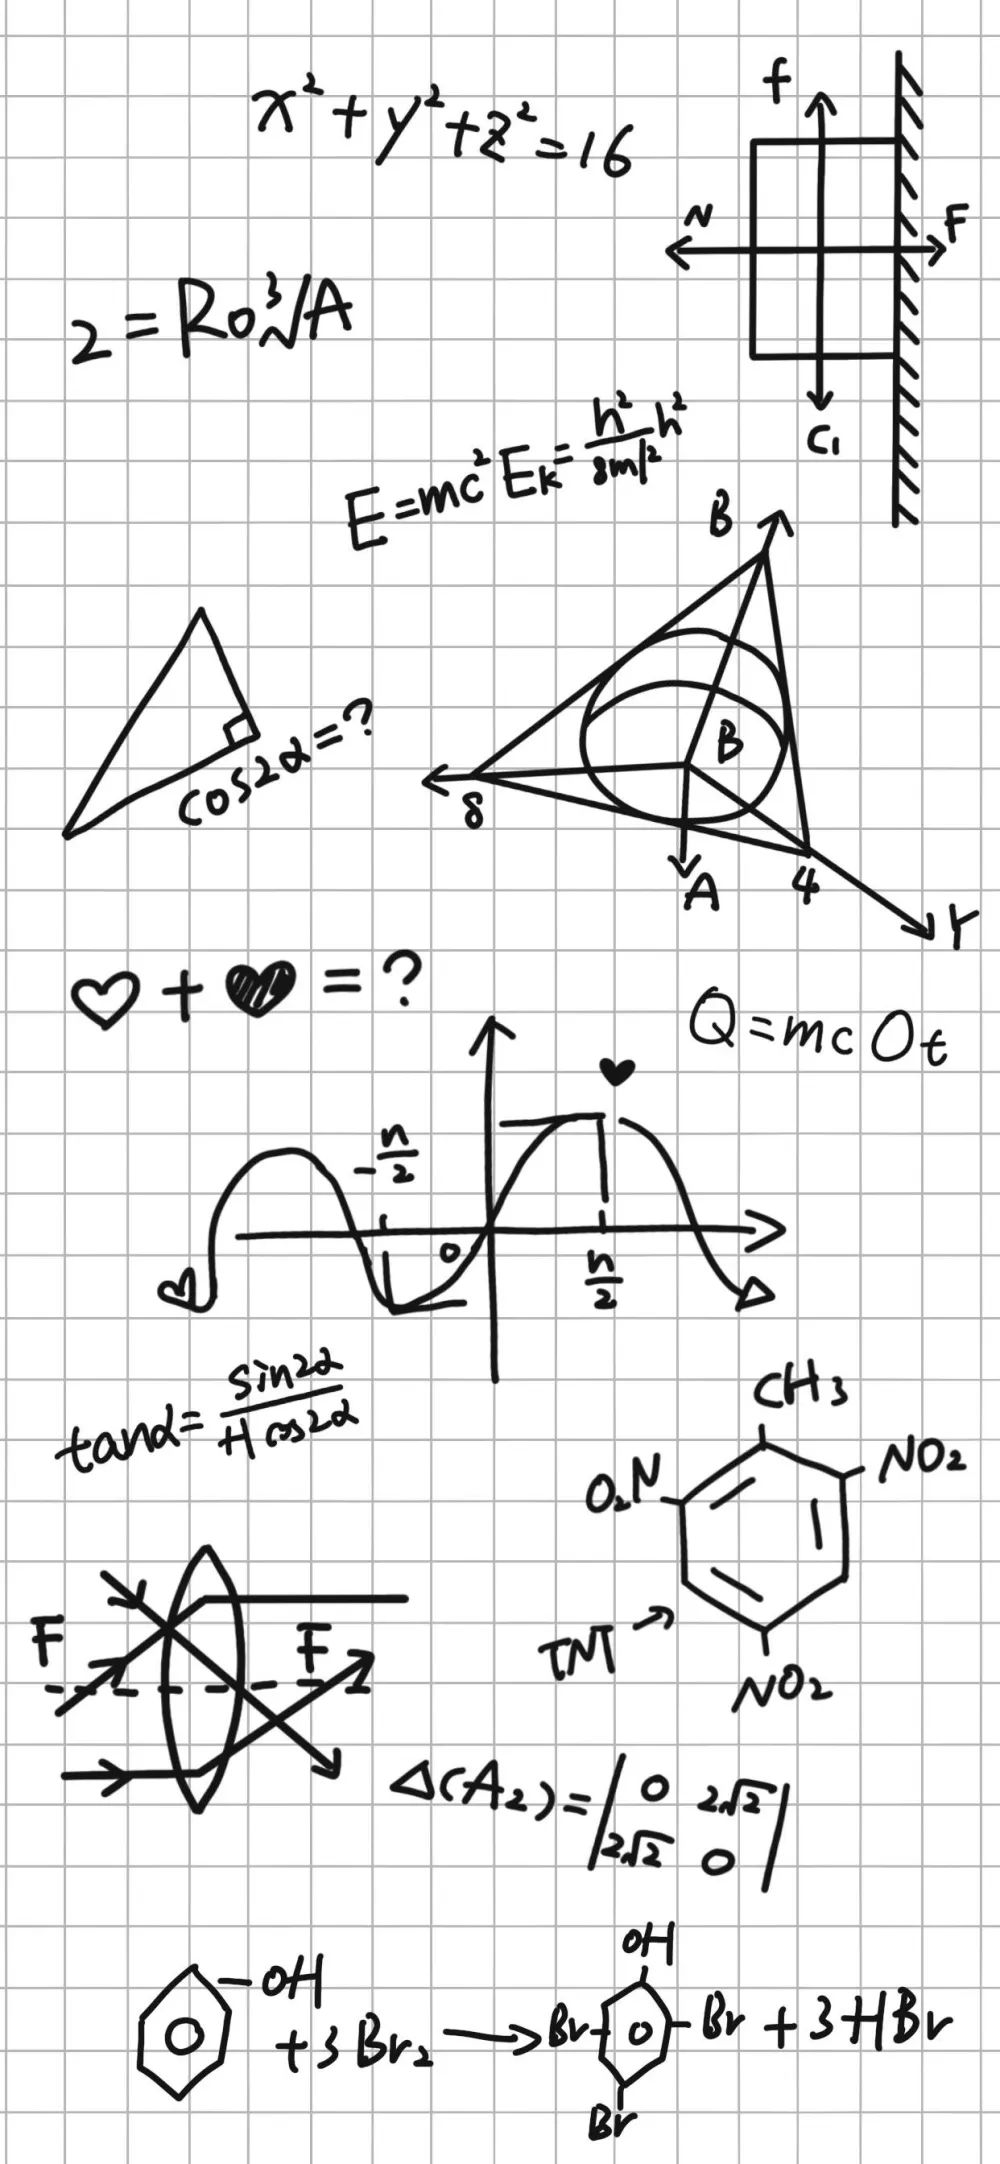 x²+y²+z²=16
f
N
F
C₁
2=Ro³√A
E=mc² Eₖ=h²/8ml² h²
B
cos2α=?
B
8
A
4
Y
♡+♥=?
Q=mcOt
♥
-n/2
0
n/2
tanα=sin2α/H cos2α
CH₃
O₂N
NO₂
TNT
NO₂
F
F
Δ(A₂)=|0 2√2|
|2√2 0|
OH
-OH
+3Br₂ → Br- -Br+3HBr
Br